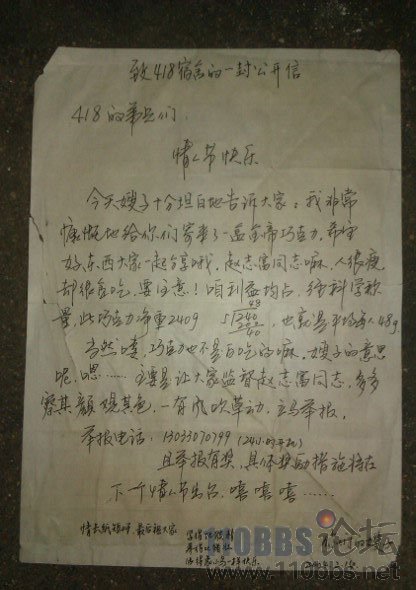 致418宿舍的一封公开信
418的弟兄们:
情人节快乐
今天嫂子十分坦白地告诉大家:我非常
慷慨地给你们寄来了一盒德芙巧克力,希望
好东西大家一起分享哦,赵志富同志嘛,人很瘦
却很贪吃,要注意!咱利益均占,经科学称
量,此巧克力净重240g 5 240 48 200 40 ,也就是平均每人48g
当然喽,巧克力也不是白吃的嘛,嫂子的意思
呢,嗯……主要是让大家监督赵志富同志,多多
察其颜观其色,一有风吹草动,立马举报,
举报电话:13033070799(24小时开机)
且举报有奖,具体奖励措施将在
下个情人节出台,嘻嘻嘻……
情长纸短 最后祝大家
110BBS论坛
www.110bbs.net